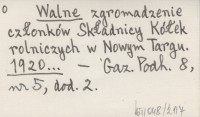 o
Walne zgromadzenie
członków Składnicy Kółek
rolniczych w Nowym Targu.
1920... — Gaz. Podh. 8,
nr 5, dod. 2.